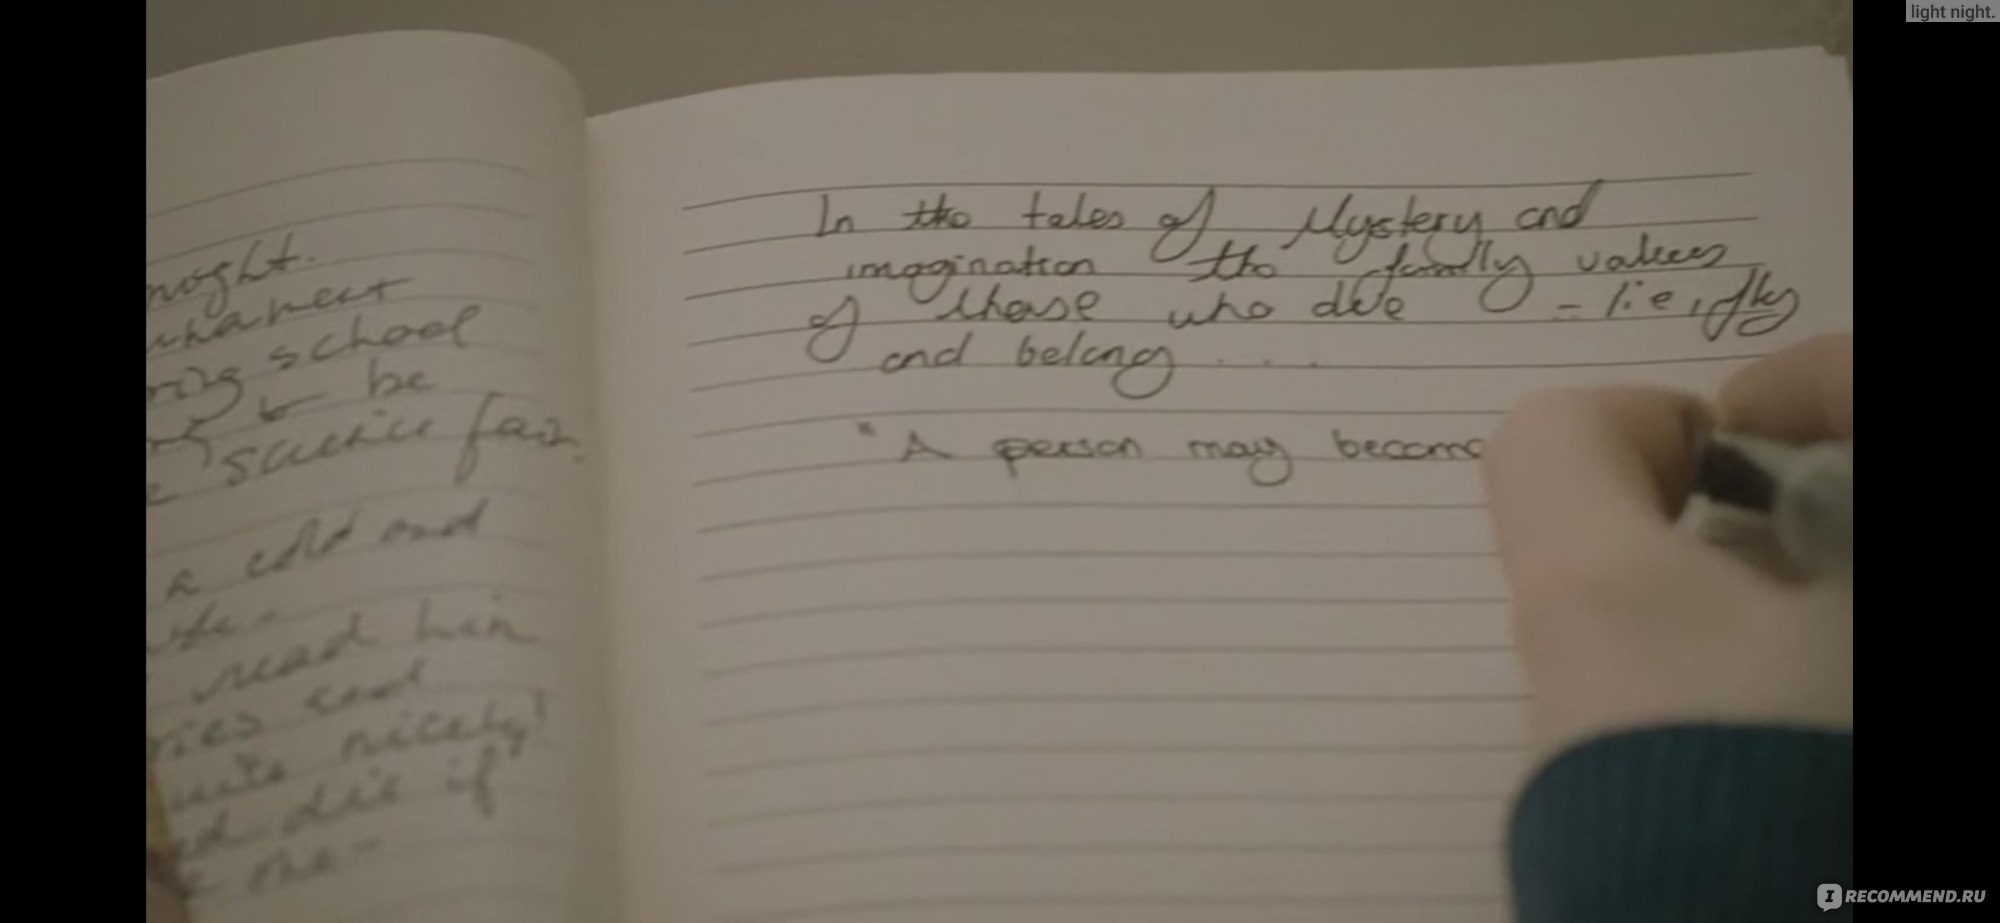 light night.
noght.
school
be
science fair.
a cold and
read him
nicely!
die if
me-
In the tales of Mystery and
imagination the family values
of those who die - lie, fly
and belong ....
"A person may become
IRECOMMEND.RU